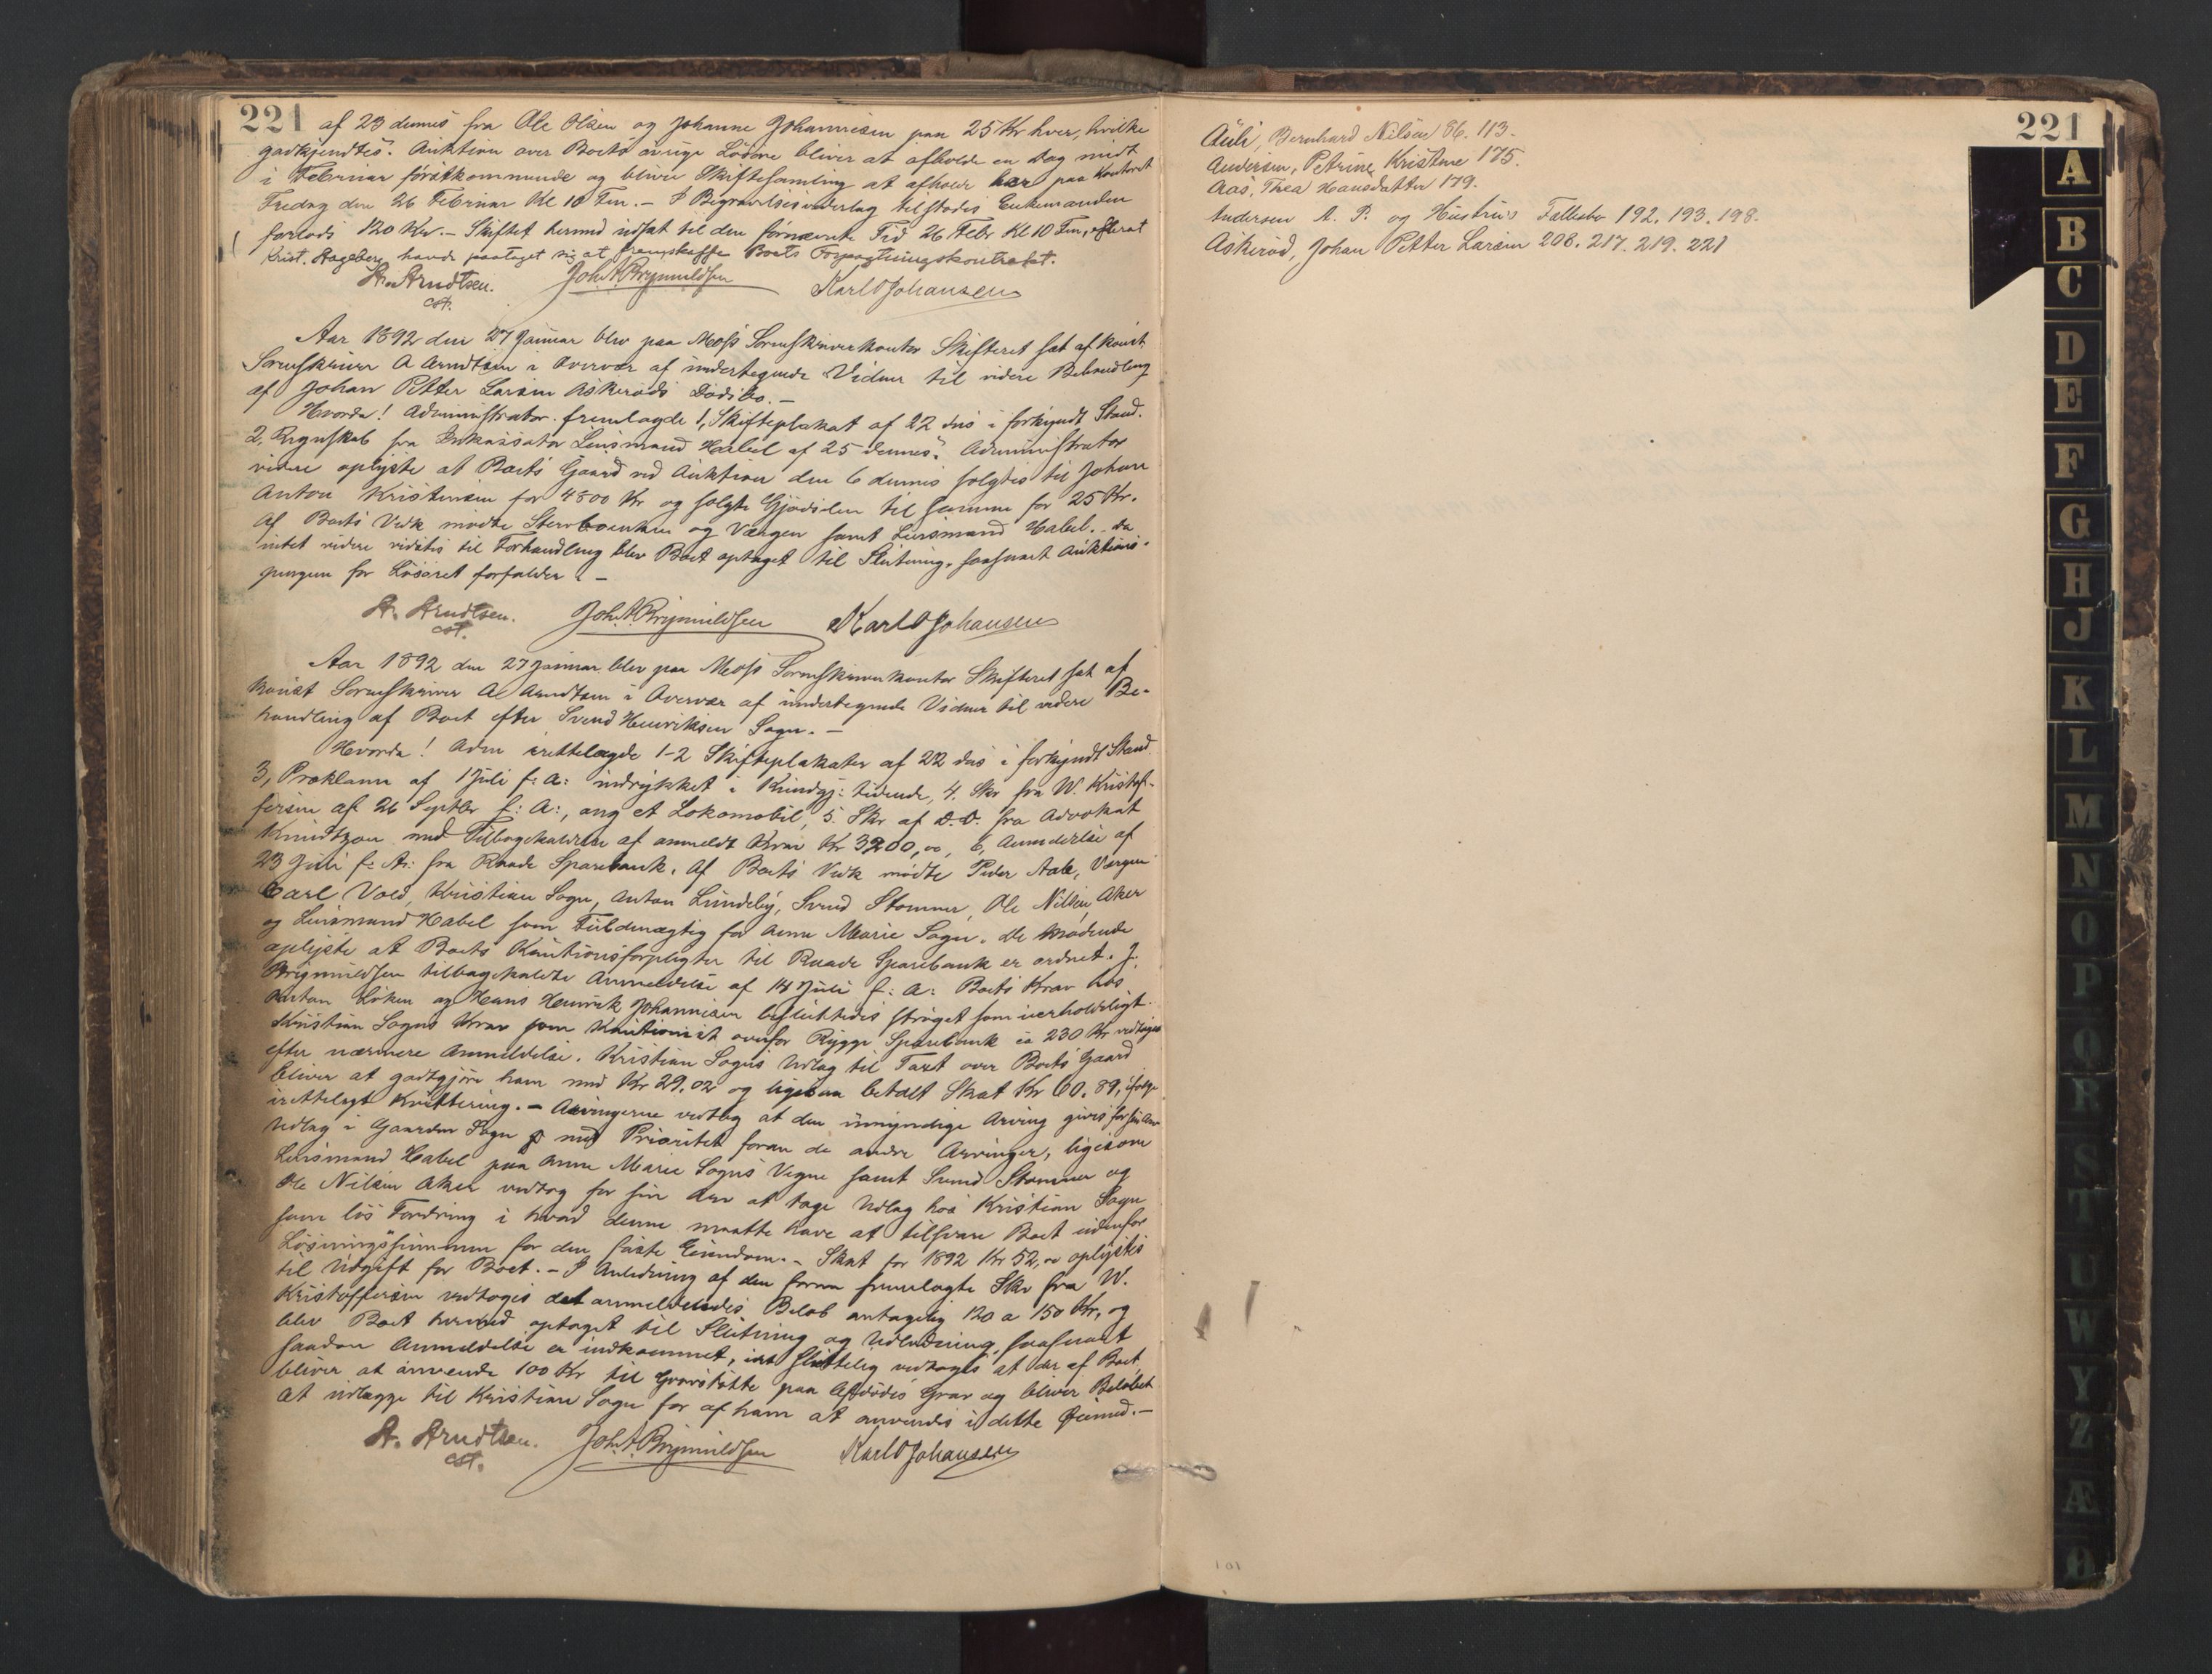 221 af 23 dennes fra Ole Olsen og Johanne Johannesen paa 25 Kr hver, hvilke
godkjendtes. Auktion over Boets øvrige Løsøre bliver at afholde en Dag midt
i Februar førstkommende og bliver Skiftesamling at afholde her paa Kontoret
Fredag den 26 Februar Kl 10 Fm. – I Begravelsesvederlag tilstodes Enkemanden
forlods 120 Kr. – Skiftet hermed udsat til den førnævnte Tid 26 Febr. Kl 10 Fm, efterat
Krist. Hageberg havde paataget sig at fremskaffe Boets Forpagtningskontrakt.
A. Arndtsen. Joh. A. Brynildsen Karl O Johansen
cst.
Aar 1892 den 27 Januar blev paa Moss Sorenskriverkontor Skifteret sat af konst.
Sorenskriver A Arndtsen i Overvær af undertegnede Vidner til videre Behandling
af Johan Petter Larsen Askerøds Dødsbo. –
Hvorda! Administrator fremlagde 1, Skifteplakat af 22 ds i forkyndt Stand.
2, Regnskab fra Inkassator Lensmand Habel af 25 dennes. Administrator
videre oplyste at Boets Gaard ved Auktion den 6 dennes solgtes til Johan
Anton Kristensen for 4800 Kr og solgte Gjødselen til samme for 25 Kr.
Af Boets Vedk mødte Stervboenken og Værgen samt Lensmand Habel. Da
intet videre vidstes til Forhandling blev Boet optaget til Slutning, saasnart Auktions-
pengene for Løsøret forfalder. –
A. Arndtsen. Joh. A. Brynildsen Karl O Johansen
cst.
Aar 1892 den 27 Januar blev paa Moss Sorenskriverkontor Skifteret sat af
konst Sorenskriver A Arndtsen i Overvær af undertegnede Vidner til videre Be-
handling af Boet efter Svend Henriksen Sogn. –
Hvorda! Adm irettelagde 1-2 Skifteplakater af 22 ds i forkyndt Stand.
3, Proklama af 1 Juli f: A: indrykket i Kundgj: tidende, 4. Skr fra W. Kristof-
fersen af 26 Septbr f: A:, ang et Lokomobil, 5. Skr af D. D. fra Advokat
Knudtzon med Tilbagekaldelse af anmeldt Krav Kr 3200,00, 6, Anmeldelse af
23 Juli f: A: fra Raade Sparebank. Af Boets Vedk mødte Peder Aale, Værgen
Carl Vold, Kristian Sogn, Anton Lundeby, Svend Stomner, Ole Nilsen Aker
og Lensmand Habel som Fuldmægtig for Anne Marie Sogn. De Mødende
oplyste at Boets Kautionsforpligter til Raade Sparebank er ordnet. J.
Brynildsen tilbagekaldte Anmeldelse af 14 Juli f: A: Boets Krav hos
Anton Løken og Hans Henrik Johannesen besluttedes strøget som uerholdeligt.
Kristian Sogns Krav som Kautionist overfor Rygge Sparebank ca 230 Kr vedtoges
efter nærmere Anmeldelse. Kristian Sogns Udlæg til Taxt over Boets Gaard
bliver at godtgjøre ham med Kr 29.02 og ligesaa betalt Skat Kr 60.89, ifølge
irettelagt Kvittering. – Arvingerne vedtog at den umyndige Arving gives for sin Arv
Udlæg i Gaarden Sogn med Prioritet foran de andre Arvinger, ligesom
Lensmand Habel paa Anne Marie Sogns Vegne samt Svend Stomner og
Ole Nilsen Aker vedtog for sin Arv at tage Udlæg hos Kristian Sogn
som løs Fordring i hvad denne maatte have at tilsvare Boet udenfor
Løsningssummen for den faste Eiendom. – Skat for 1892 Kr 52,00 oplystes
til Udgift for Boet. – I Anledning af den foran fremlagte Skr fra W.
Kristoffersen vedtoges det anmeldendes Beløb antagelig 120 a 150 Kr, og
blev Boet hermed optaget til Slutning og Udlodning, saasnart
saadan Anmeldelse er indkommet, idet sluttelig vedtoges at der af Boet
bliver at anvende 100 Kr til Gravstøtte paa Afdødes Grav og bliver Beløbet
at udlægge til Kristian Sogn for af ham at anvendes i dette Øiemed. –
A. Arndtsen. Joh. A. Brynildsen Karl O Johansen
cst.
221
Auli, Bernhard Nilsen 86. 113.
Andersen, Petrine Kristine 175.
Aas, Thea Hansdatter 179.
Andersen A. P. og Hustrus Fællesbo 192. 193. 198.
Askerød, Johan Petter Larsen 208. 217. 219. 221
A
B
C
D
E
F
G
H
J
K
L
M
N
O
P
Q
R
S
T
U
W
Y
Z
Æ
Ø